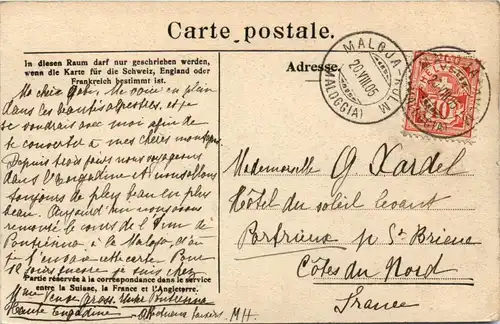 Carte postale.
In diesen Raum darf nur geschrieben werden,
wenn die Karte für die Schweiz, England oder
Frankreich bestimmt ist.
Adresse.
MALOJA-KULM
20.VIII.05
(MALOGGIA)
HELVETIA
10
Ma chère me voici en plein
dans ces beautés alpestres, et je
te voudrais avec moi afin de
te convertir à mes chères montagnes
Depuis trois jours nous voyageons
dans l'Engadine et nous allons
toujours de plus beau en plus
beau.
remonté le cours de l'Inn de
à la Maloja d'où
je t'envoie cette carte Pour
12 jours encore je suis chez
Partie réservée à la correspondance dans le service
entre la Suisse, la France et l'Angleterre.
Mme
Haute Engadine M H.
Mademoiselle G. Kardel
Hôtel du soleil levant
Portrieux p St Brieuc
Côtes du Nord
France